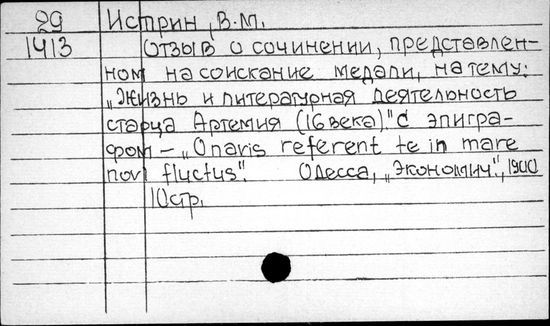 29 Истрин, В.М.
1413 Отзыв о сочинении, представлен-
ном на соискание медали, на тему:
„Жизнь и литературная деятельность
старца Артемия (16 века)" с эпигра-
фом – „O navis referent te in mare
novi fluctus". Одесса, „Экономич.", 1900
10 стр.